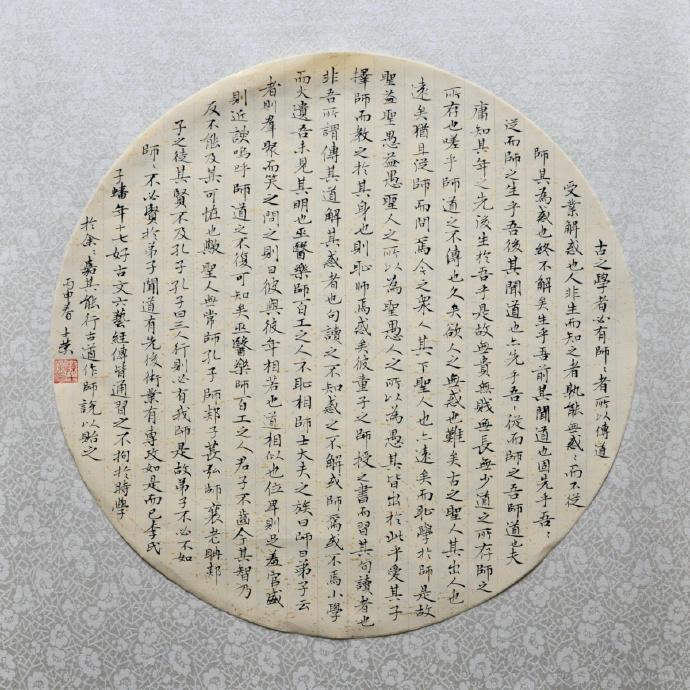 古之學者必有師〻者所以傳道
受業解惑也人非生而知之者孰能無惑〻而不從
師其為惑也終不解矣生乎吾前其聞道也固先乎吾〻
從而師之生乎吾後其聞道也亦先乎吾〻從而師之吾師道也夫
庸知其年之先後生於吾乎是故無貴無賤無長無少道之所存師之
所存也嗟乎師道之不傳也久矣欲人之無惑也難矣古之聖人其出人也
遠矣猶且從師而問焉今之衆人其下聖人也亦遠矣而恥學於師是故
聖益聖愚益愚聖人之所以為聖愚人之所以為愚其皆出於此乎愛其子
擇師而教之於其身也則恥師焉惑矣彼童子之師授之書而習其句讀者也
非吾所謂傳其道解其惑者也句讀之不知惑之不解或師焉或不焉小學
而大遺吾未見其明也巫醫樂師百工之人不恥相師士大夫之族曰師曰弟子云
者則羣聚而笑之問之則曰彼與彼年相若也道相似也位卑則足羞官盛
則近諛嗚呼師道之不復可知矣巫醫樂師百工之人君子不齒今其智乃
反不能及其可怪也歟聖人無常師孔子師郯子萇弘師襄老聃郯
子之徒其賢不及孔子孔子曰三人行則必有我師是故弟子不必不如
師〻不必賢於弟子聞道有先後術業有專攻如是而已李氏
子蟠年十七好古文六藝經傳皆通習之不拘於時學
於余〻嘉其能行古道作師說以貽之
丙申春士榮